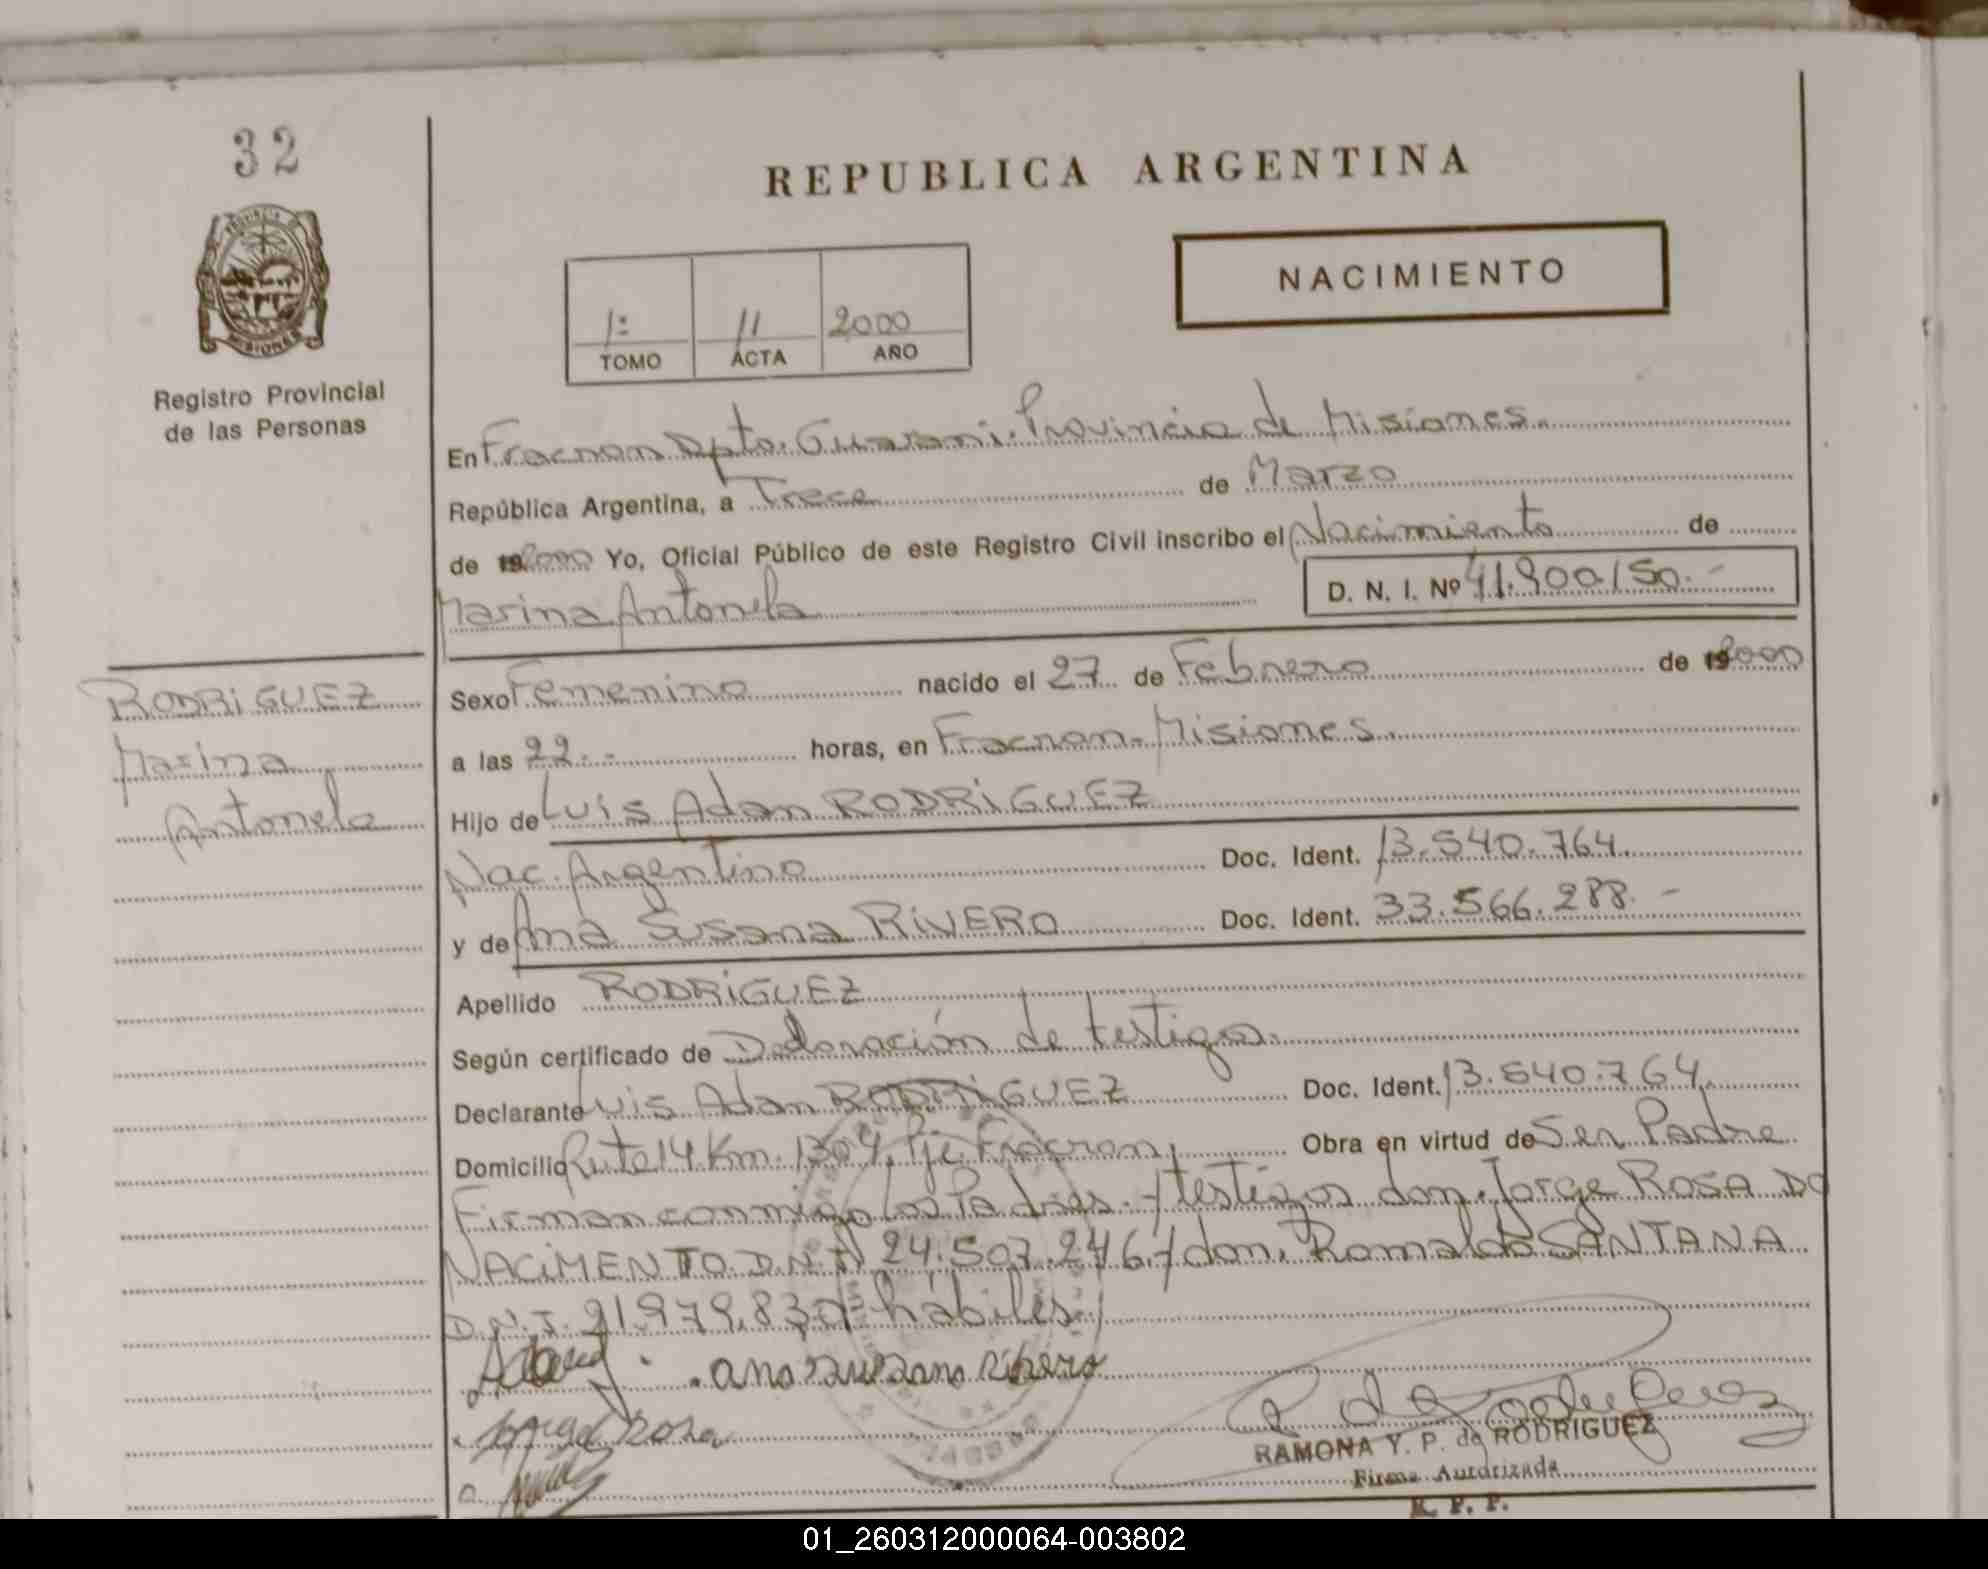 32
REPUBLICA ARGENTINA
NACIMIENTO
1º 11 2000
TOMO ACTA AÑO
Registro Provincial
de las Personas
En Fracran Dpto. Guarani. Provincia de Misiones.
República Argentina, a Trece de Marzo
de 192000 Yo, Oficial Público de este Registro Civil inscribo el Nacimiento de
Marina Antonela D. N. I. Nº 41.900.150.-
RODRIGUEZ
Marina
Antonela
Sexo Femenino nacido el 27 de Febrero de 192000
a las 22.- horas, en Fracran-Misiones.
Hijo de Luis Adan RODRIGUEZ
Nac. Argentino Doc. Ident. 13.540.764.
y de Ana Susana RIVERO Doc. Ident. 33.566.288.-
Apellido RODRIGUEZ
Según certificado de Declaración de testigos.
Declarante Luis Adan RODRIGUEZ Doc. Ident. 13.540.764.
Domicilio Ruta 14 Km. 1304, Pje Fracran, Obra en virtud de Ser Padre
Firman conmigo los Padres. y testigos don. Jorge ROSA DO
NACIMENTO D.N.I 24.507.246 y don. Romaldo SANTANA
D.N.I. 21.979.830 hábiles.
ana susana Ribero
Jorge Rosa
RAMONA Y. P. de RODRIGUEZ
Firma Autorizada
R. P. P.
01_260312000064-003802